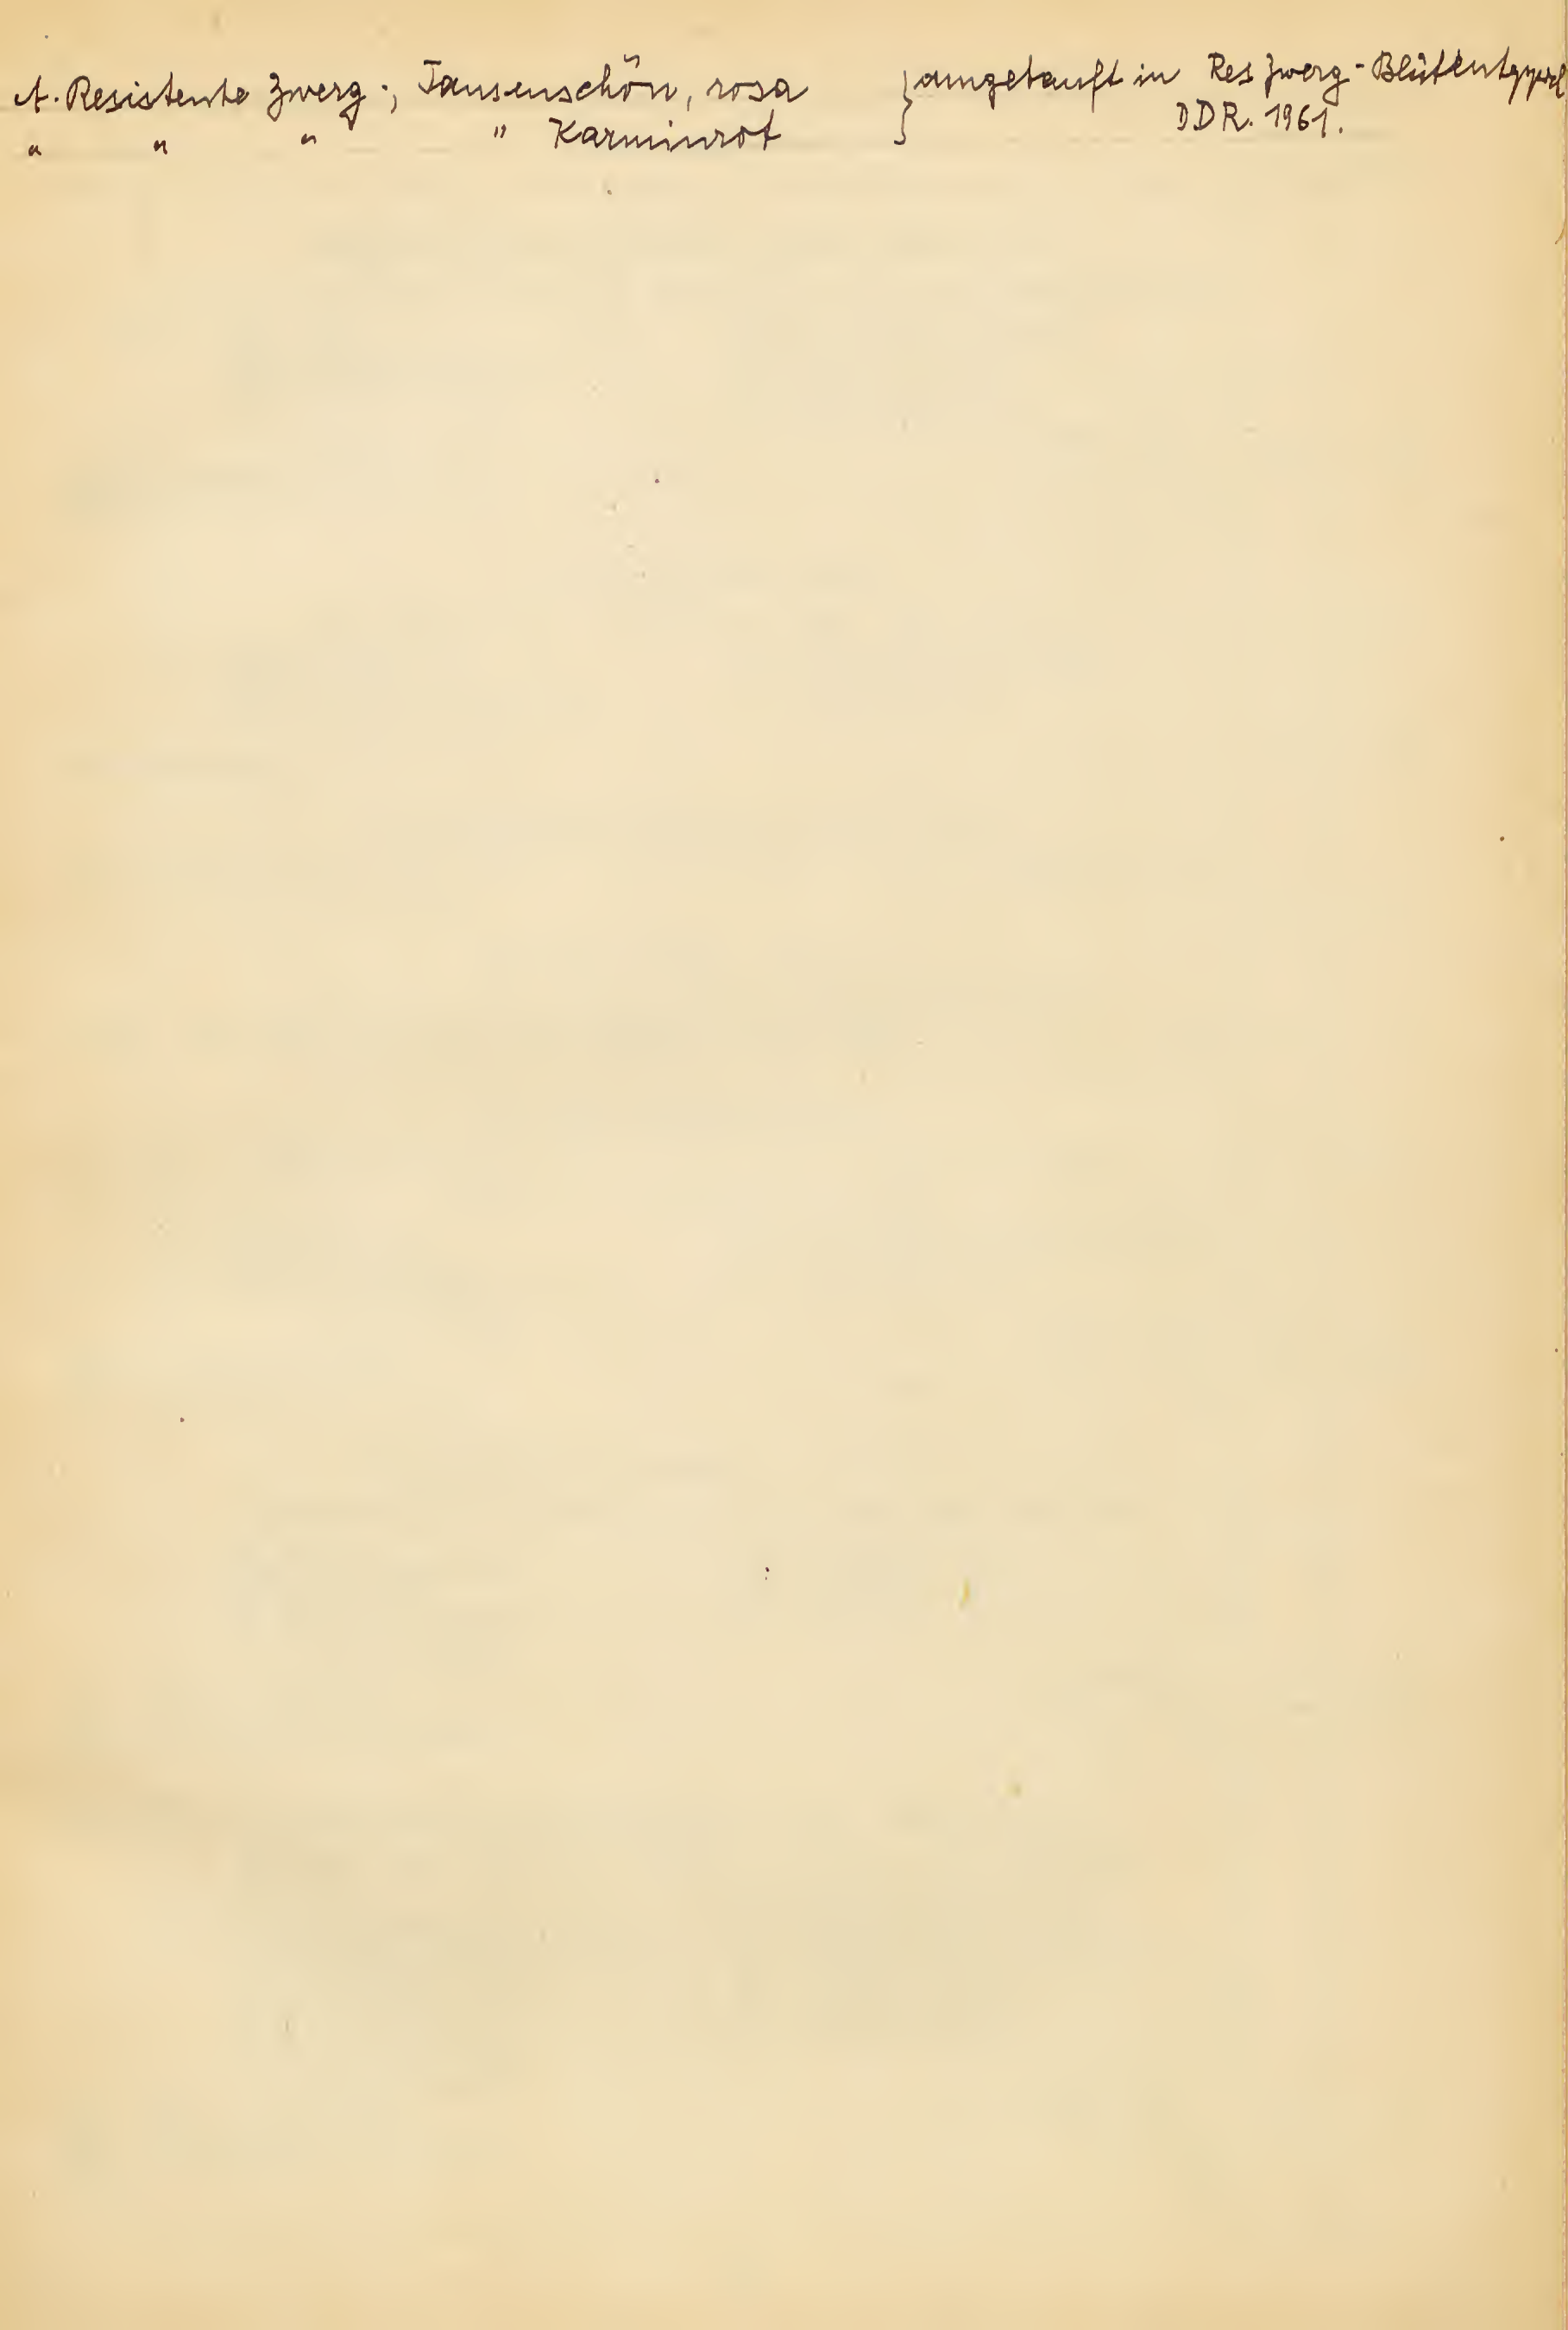 A. Resistente Zwerg-, Tausenschön, rosa } umgetauft in Res Zwerg-Blütenteppich
" " " " Karminrot } DDR. 1961.